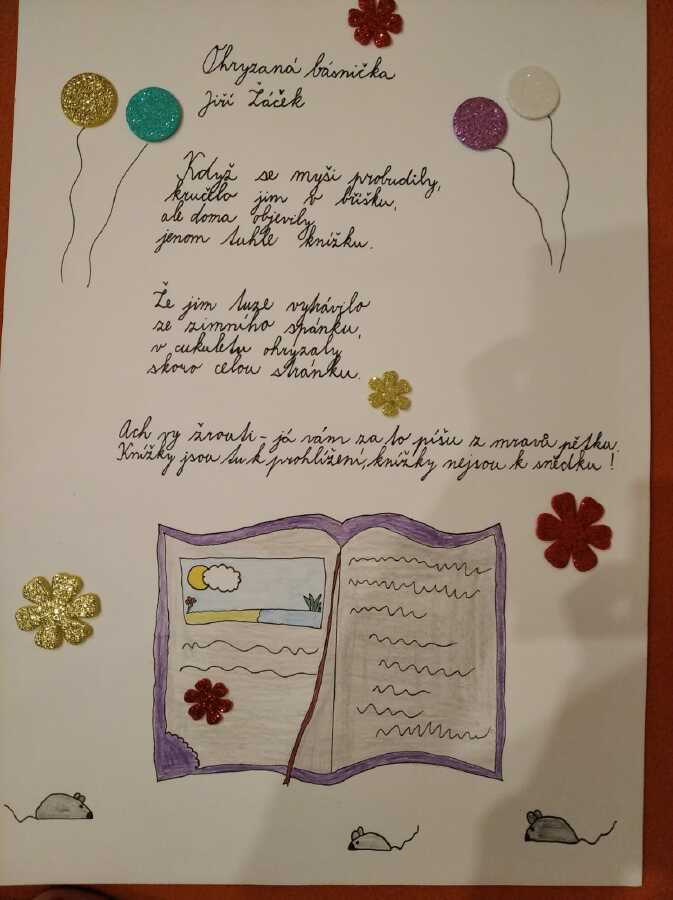 Ohryzaná básnička
Jiří Žáček
Když se myši probudily,
kručelo jim v bříšku,
ale doma objevily
jenom tuhle knížku.
Že jim tuze vytrávilo
ze zimního spánku,
v cukuletu ohryzaly
skoro celou stránku.
Ach vy žrouti - já vám za to píšu z mravů pětku.
Knížky jsou tu k prohlížení, knížky nejsou k snědku!